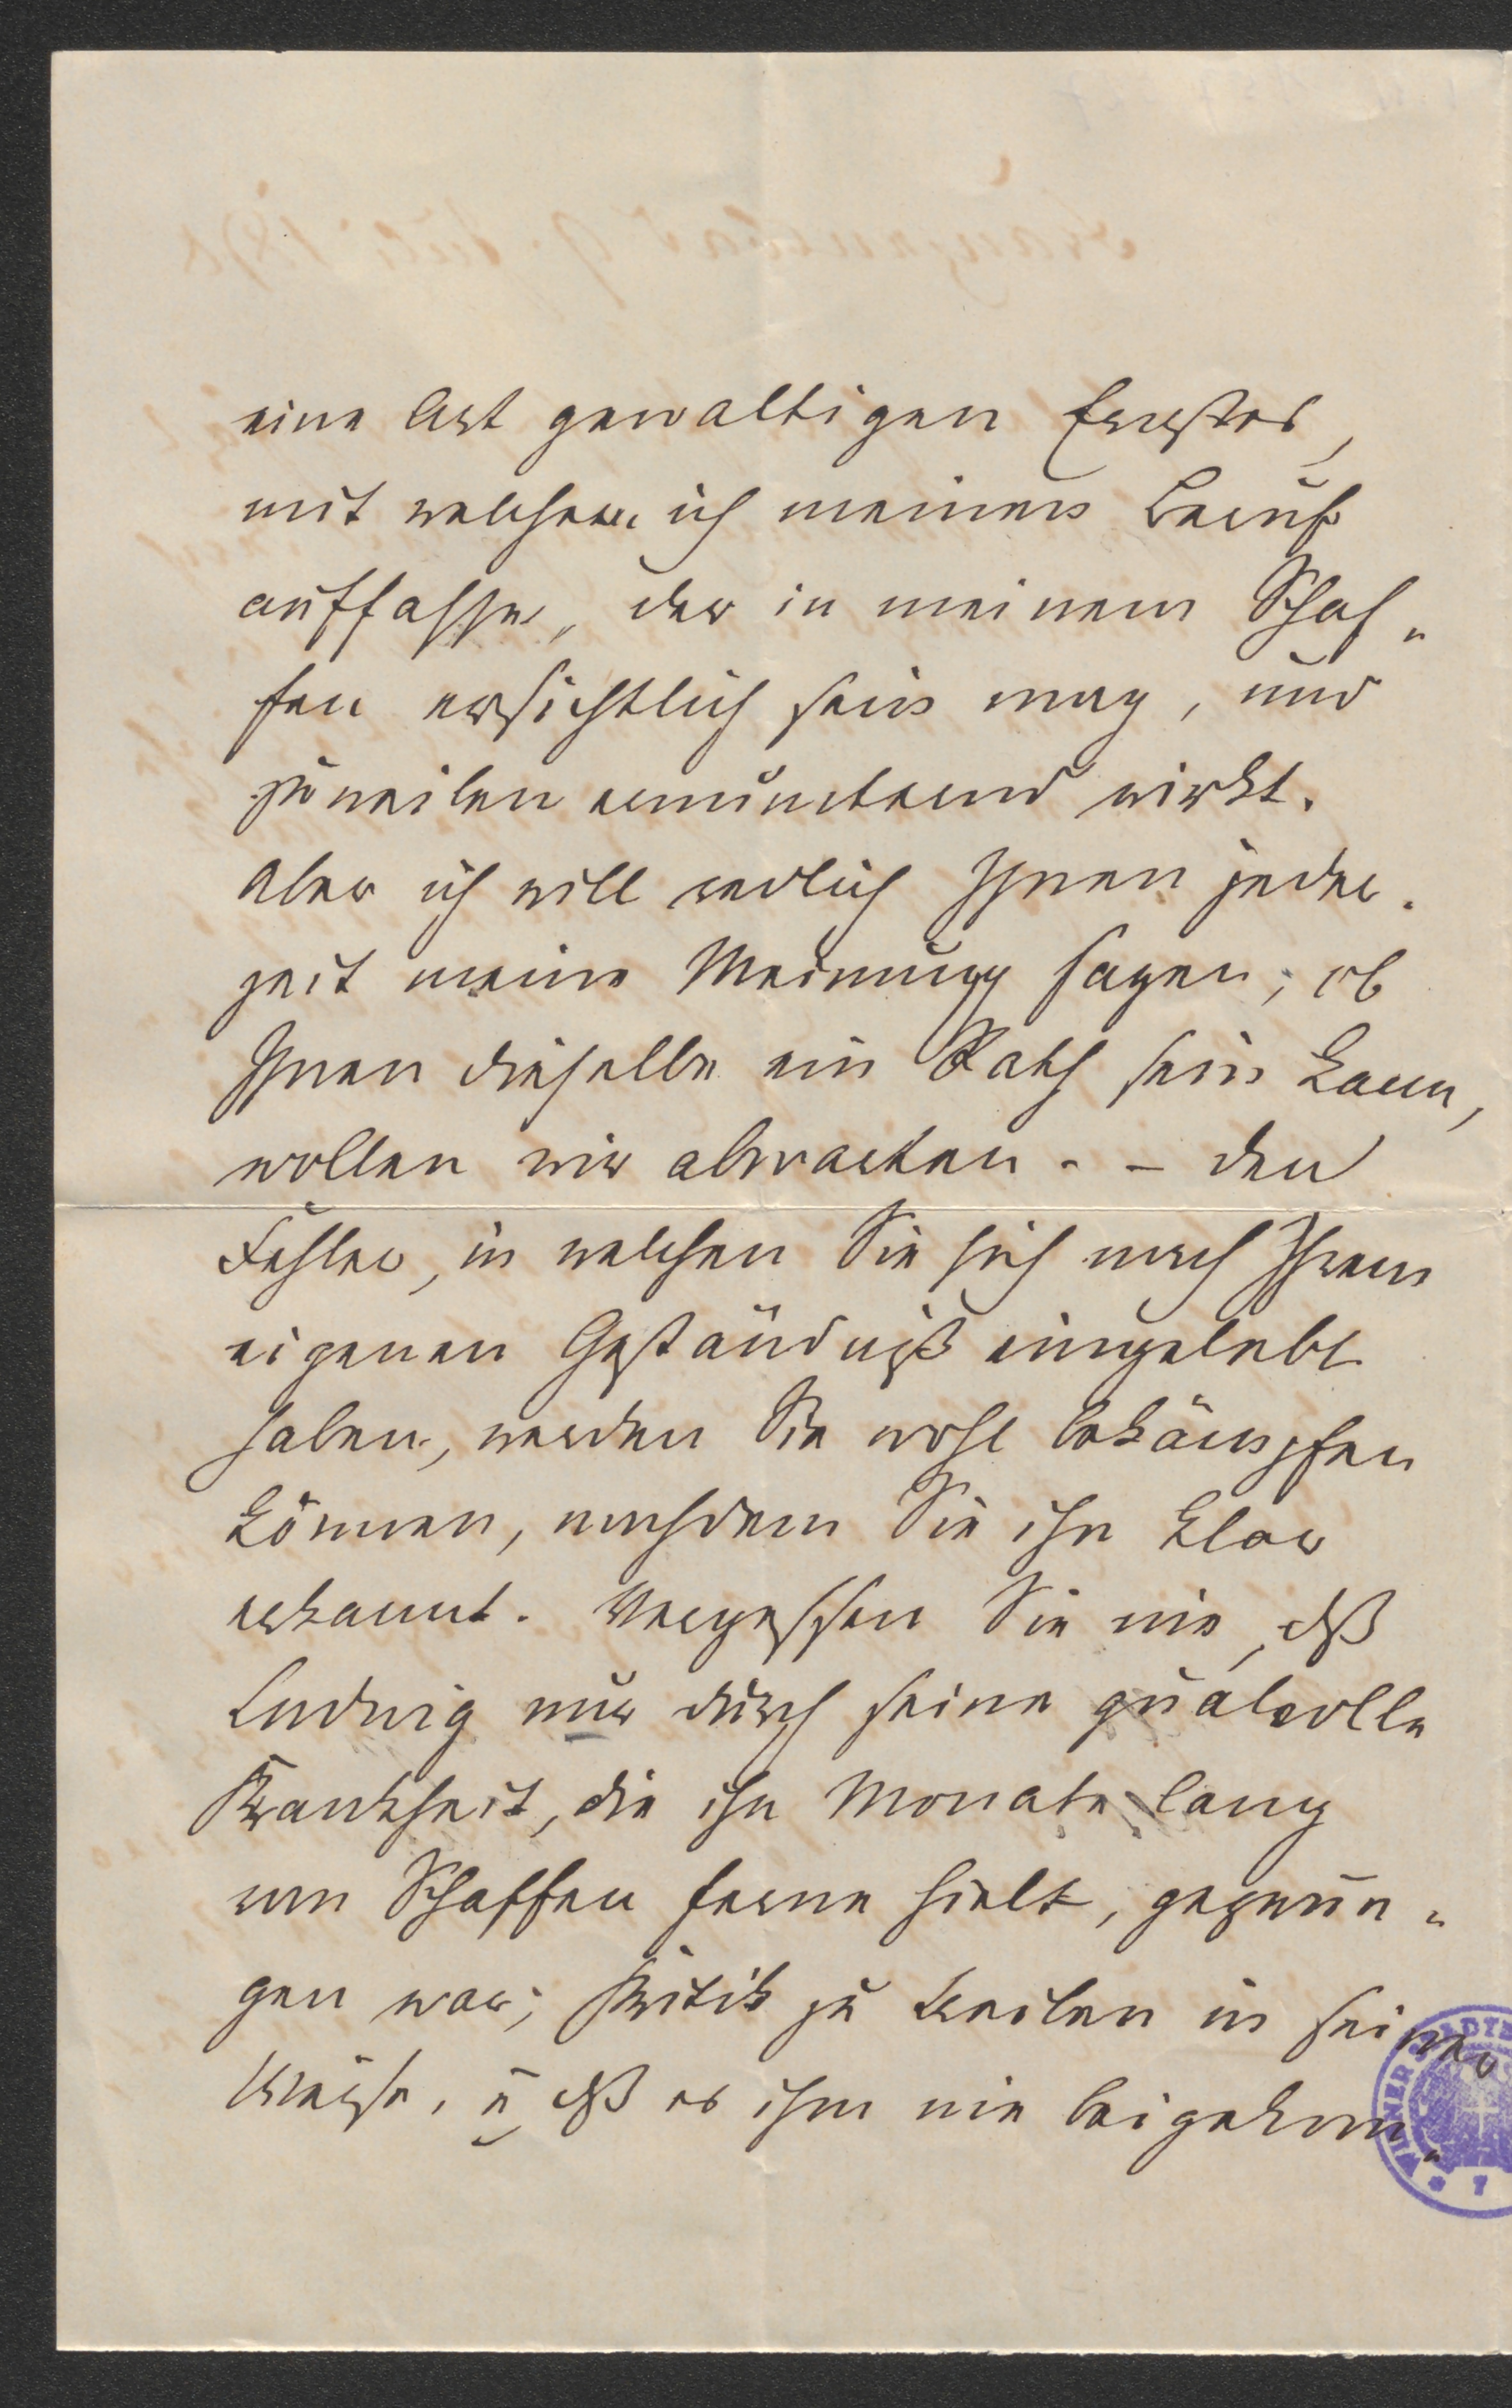 eine Art gewaltigen Ernstes,
mit welchem ich meinen Beruf
auffasse, der in meinem Schaf„
fen ersichtlich sein mag, und
zuweilen ermunternd wirkt.
Aber ich will redlich Ihnen jeder„
zeit meine Meinung sagen; ob
Ihnen dieselbe ein Rath sein kann,
wollen wir abwarten. – den
Fehler, in welchen Sie sich nach Ihrem
eigenen Geständniß eingelebt
haben, werden Sie wohl bekämpfen
können, nachdem Sie ihn klar
erkannt. Vergessen Sie nie, dß
Ludwig nur durch seine qualvolle
Krankheit, die ihn Monate lang
vom Schaffen ferne hielt, gezwun„
gen war; Kritik zu treiben in seiner
Weise, u dß es ihm nie beigekom„
WIENER STADTB
7